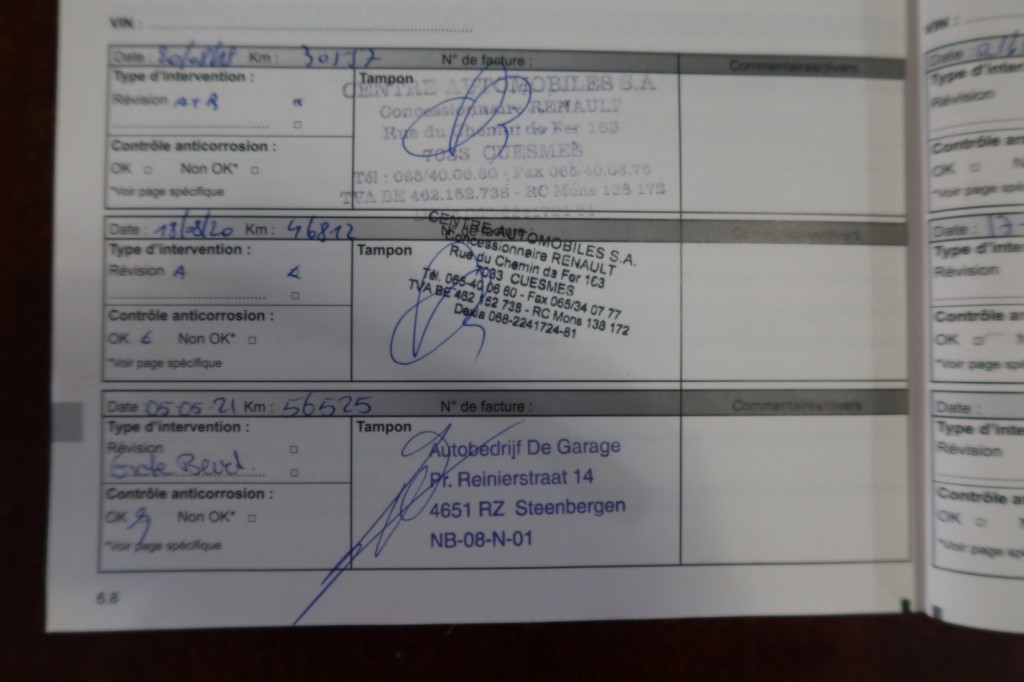 VIN :
Date : 20/08/18 Km : 30157 N° de facture : Commentaires/divers
Type d'intervention : Tampon
Révision A+B
CENTRE AUTOMOBILES S.A
Concessionnaire RENAULT
Rue du Chemin de Fer 163
7033 CUESMES
Tél : 065/40.06.60 - Fax 065/40.06.75
TVA BE 462.152.738 - RC Mons 138 172
Contrôle anticorrosion :
OK Non OK*
*Voir page spécifique
Date : 18/08/20 Km : 46812 N° de facture : Commentaires/divers
Type d'intervention : Tampon
Révision A
CENTRE AUTOMOBILES S.A.
Concessionnaire RENAULT
Rue du Chemin de Fer 163
7033 CUESMES
Tél. 065-40 06 60 - Fax 065/34 07 77
TVA BE 462 152 738 - RC Mons 138 172
Dexia 068-2241724-81
Contrôle anticorrosion :
OK Non OK*
*Voir page spécifique
Date : 05-05-21 Km : 56525 N° de facture : Commentaires/divers
Type d'intervention : Tampon
Révision
Grote Beurt.
Autobedrijf De Garage
Pr. Reinierstraat 14
4651 RZ Steenbergen
NB-08-N-01
Contrôle anticorrosion :
OK Non OK*
*Voir page spécifique
6.8
VIN :
Date :
Type d'inter
Révision
Contrôle an
OK
*Voir page spé
Date : 17-
Type d'inte
Révision
Contrôle an
OK
*Voir page spé
Date :
Type d'inte
Révision
Contrôle a
OK
*Voir page sp